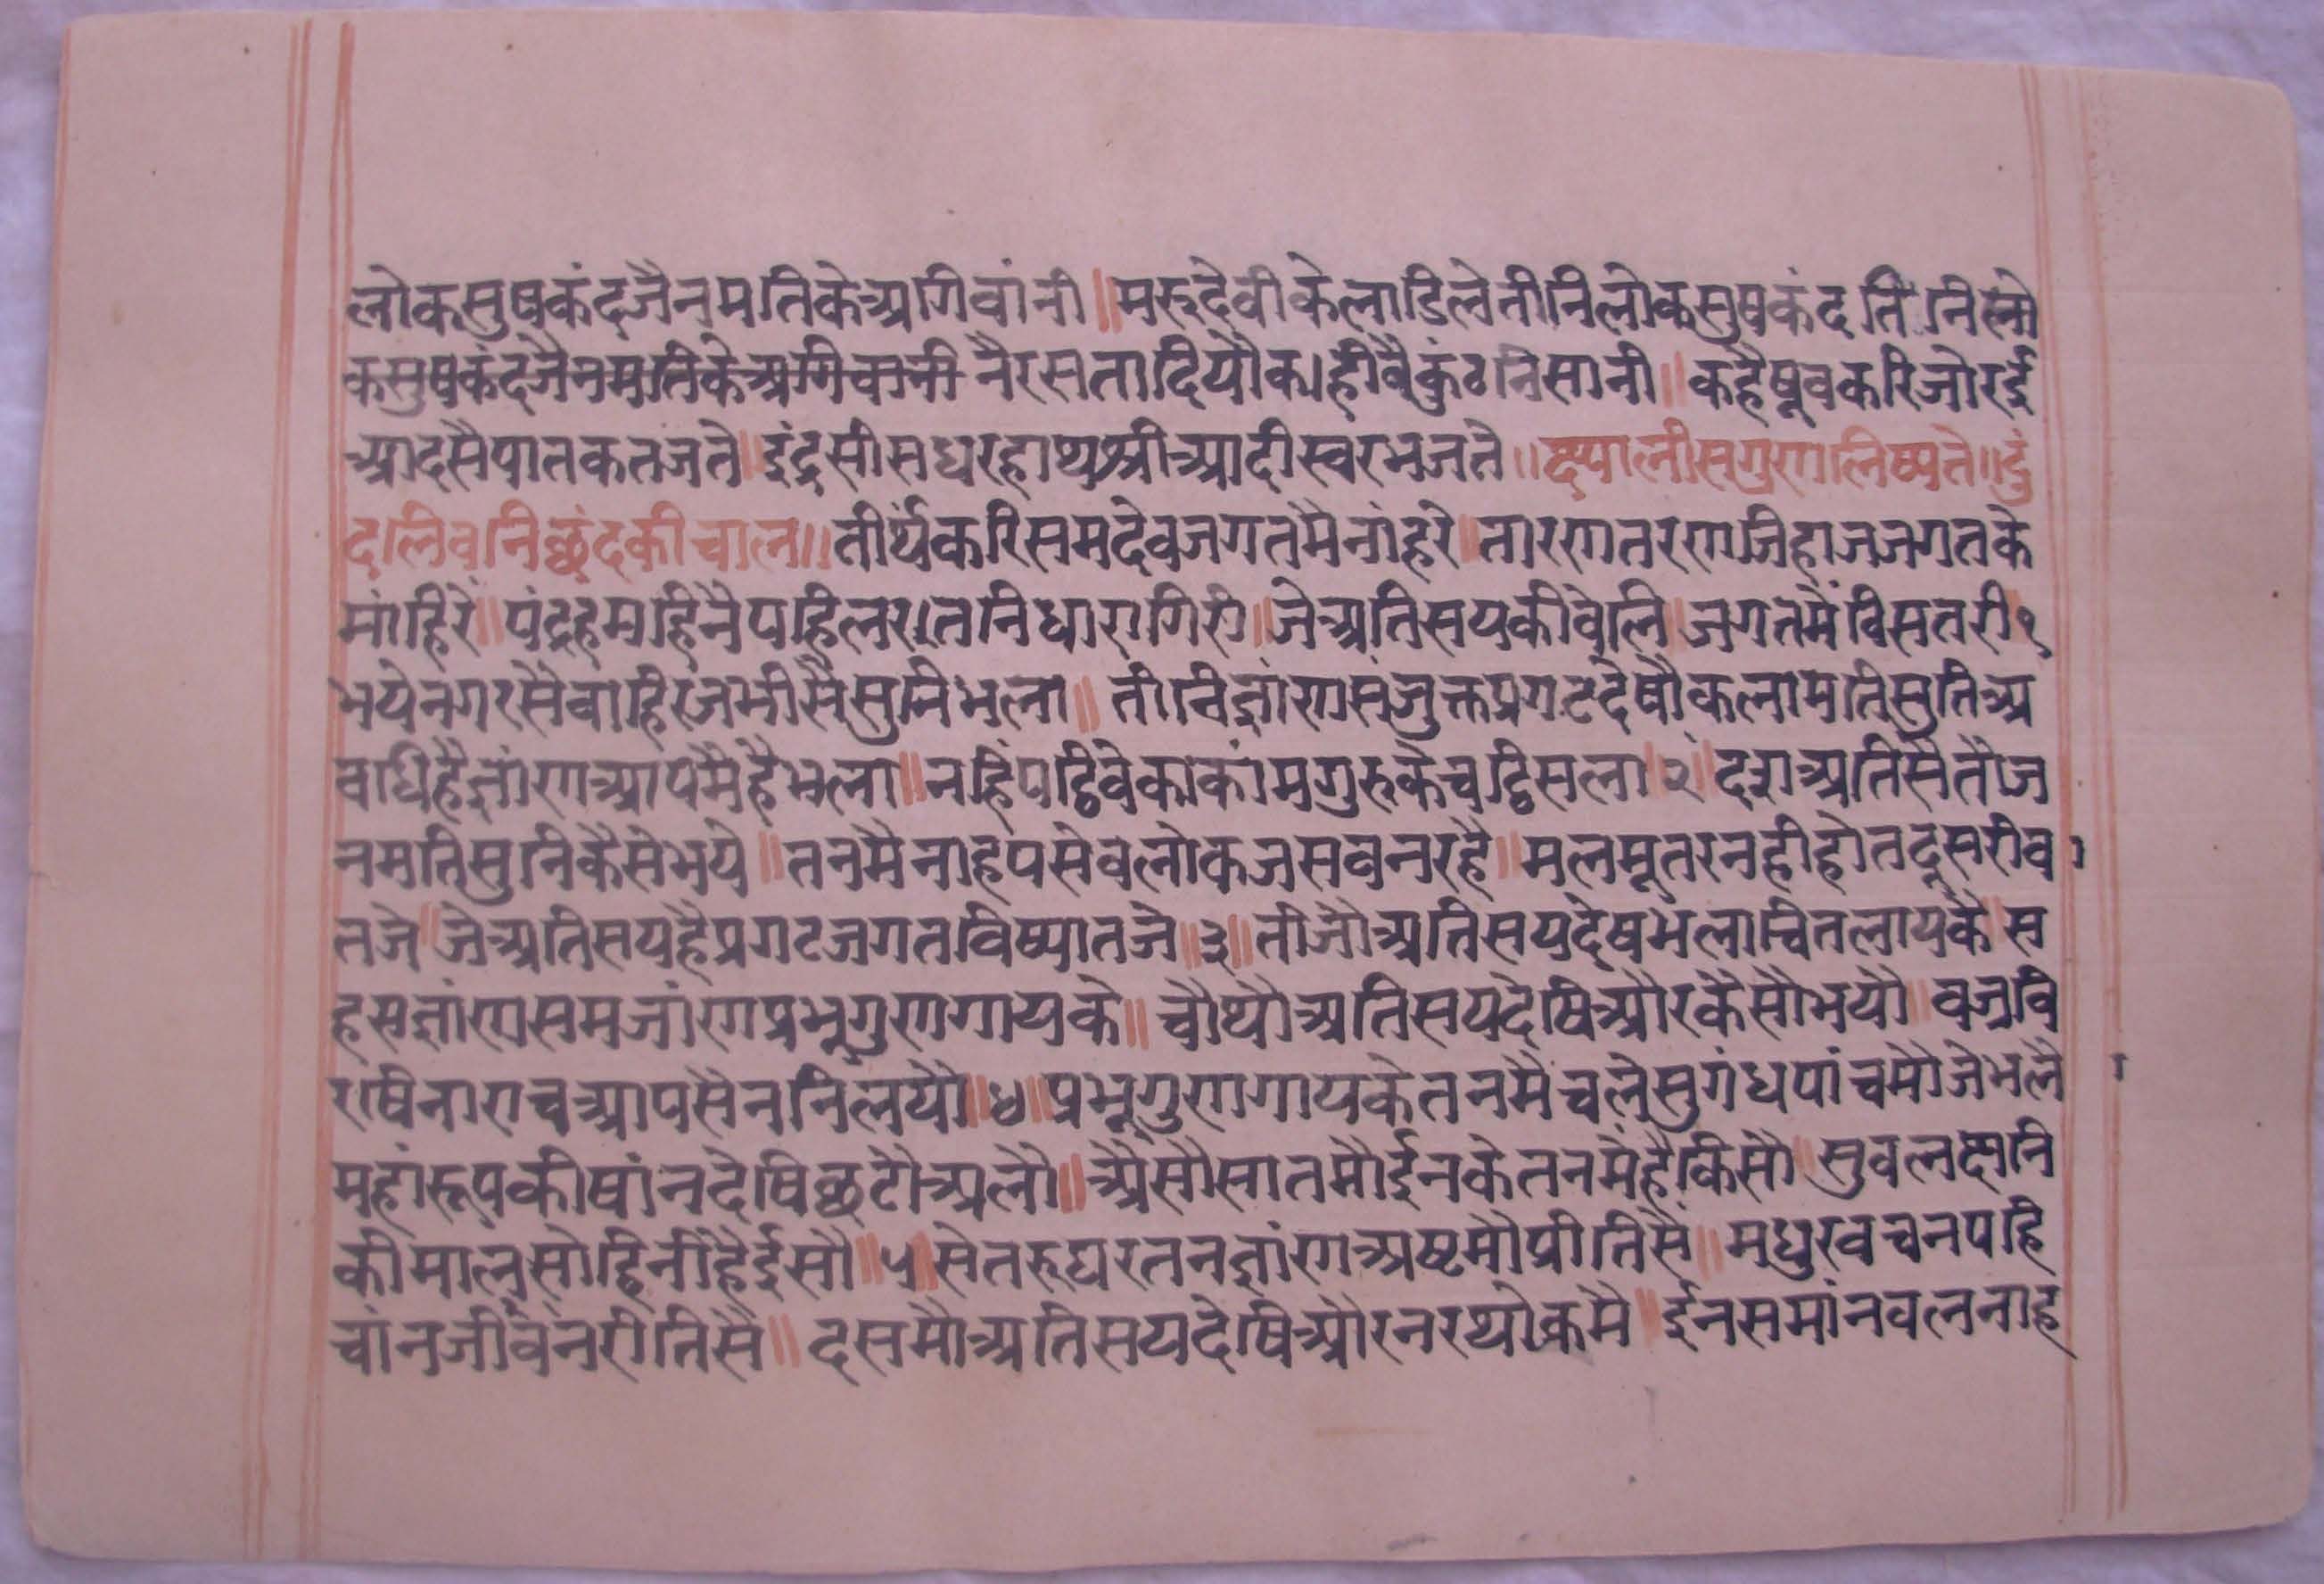 लोकसुषकंदजैनमतिकेअगिवांनी॥मरुदेवीकेलाडिलेतीनिलोकसुषकंदतिनिलो
कसुषकंदजैनमतिकेअगीवानीनैरसतादियौकाहीवैकुंठनिसानी॥कहैषूवकरिजोरई
आदसैपातकतजते॥इंद्रसीसधरहाथश्रीआदीस्वरभजते॥छ्यालीसगुणलिष्यते॥दुं
दलिवनिछंदकीचाल॥तीर्थंकरिसमदेवजगतमैनांहरे॥तारणतरणजिहाजजगतके
मांहिरे॥पंद्रहमहिनैपहिलरातनिधारागिरी॥जेअतिसयकीवेलि॥जगतमैंविसतरी१
भयेनगरसैवाहिरंजमीसैसुनिभला॥तीनिज्ञांणसंजुक्तप्रगटदेषौकलामतिसुतिअ
वधिहैज्ञांणआपमैहैभला॥नहिंपढिवेकाकांमगुरुकेचढिसला२॥दशअतिसैतौज
नमतिसुनिकैसेभये॥तनमैनाहपसेवलोकजसवनरहै॥मलमूतरनहीहोतदूसरीवा
तजे॥जेअतिसयहैप्रगटजगतविष्यातजे॥३॥तीजौअतिसयदेषभलाचितलायकै॥स
हसज्ञांणसमजांणप्रभूगुणगायके॥चौथौअतिसयदेषिऔरकैसौभयौ॥वज्रवि
राषिनाराचआपसैननिलयौ॥४॥प्रभूगुणगायकेतनमैचलेसुगंधपांचमौजेभलै
महांरूपकीषांनदेषिछटौअलौ॥ऐसौसातमौईनकेतनमैहैकिसौ॥सुवलछनि
कीमालसोहिनींहैईसौ॥५॥सेतरुघरतनज्ञांणअष्टमौप्रीतिसैं॥मधुरवचनपहि
चांनजीवनरीतिसै॥दसमौअतिसयदेषिऔरनरथोकमै॥ईनसमांनवलनाह